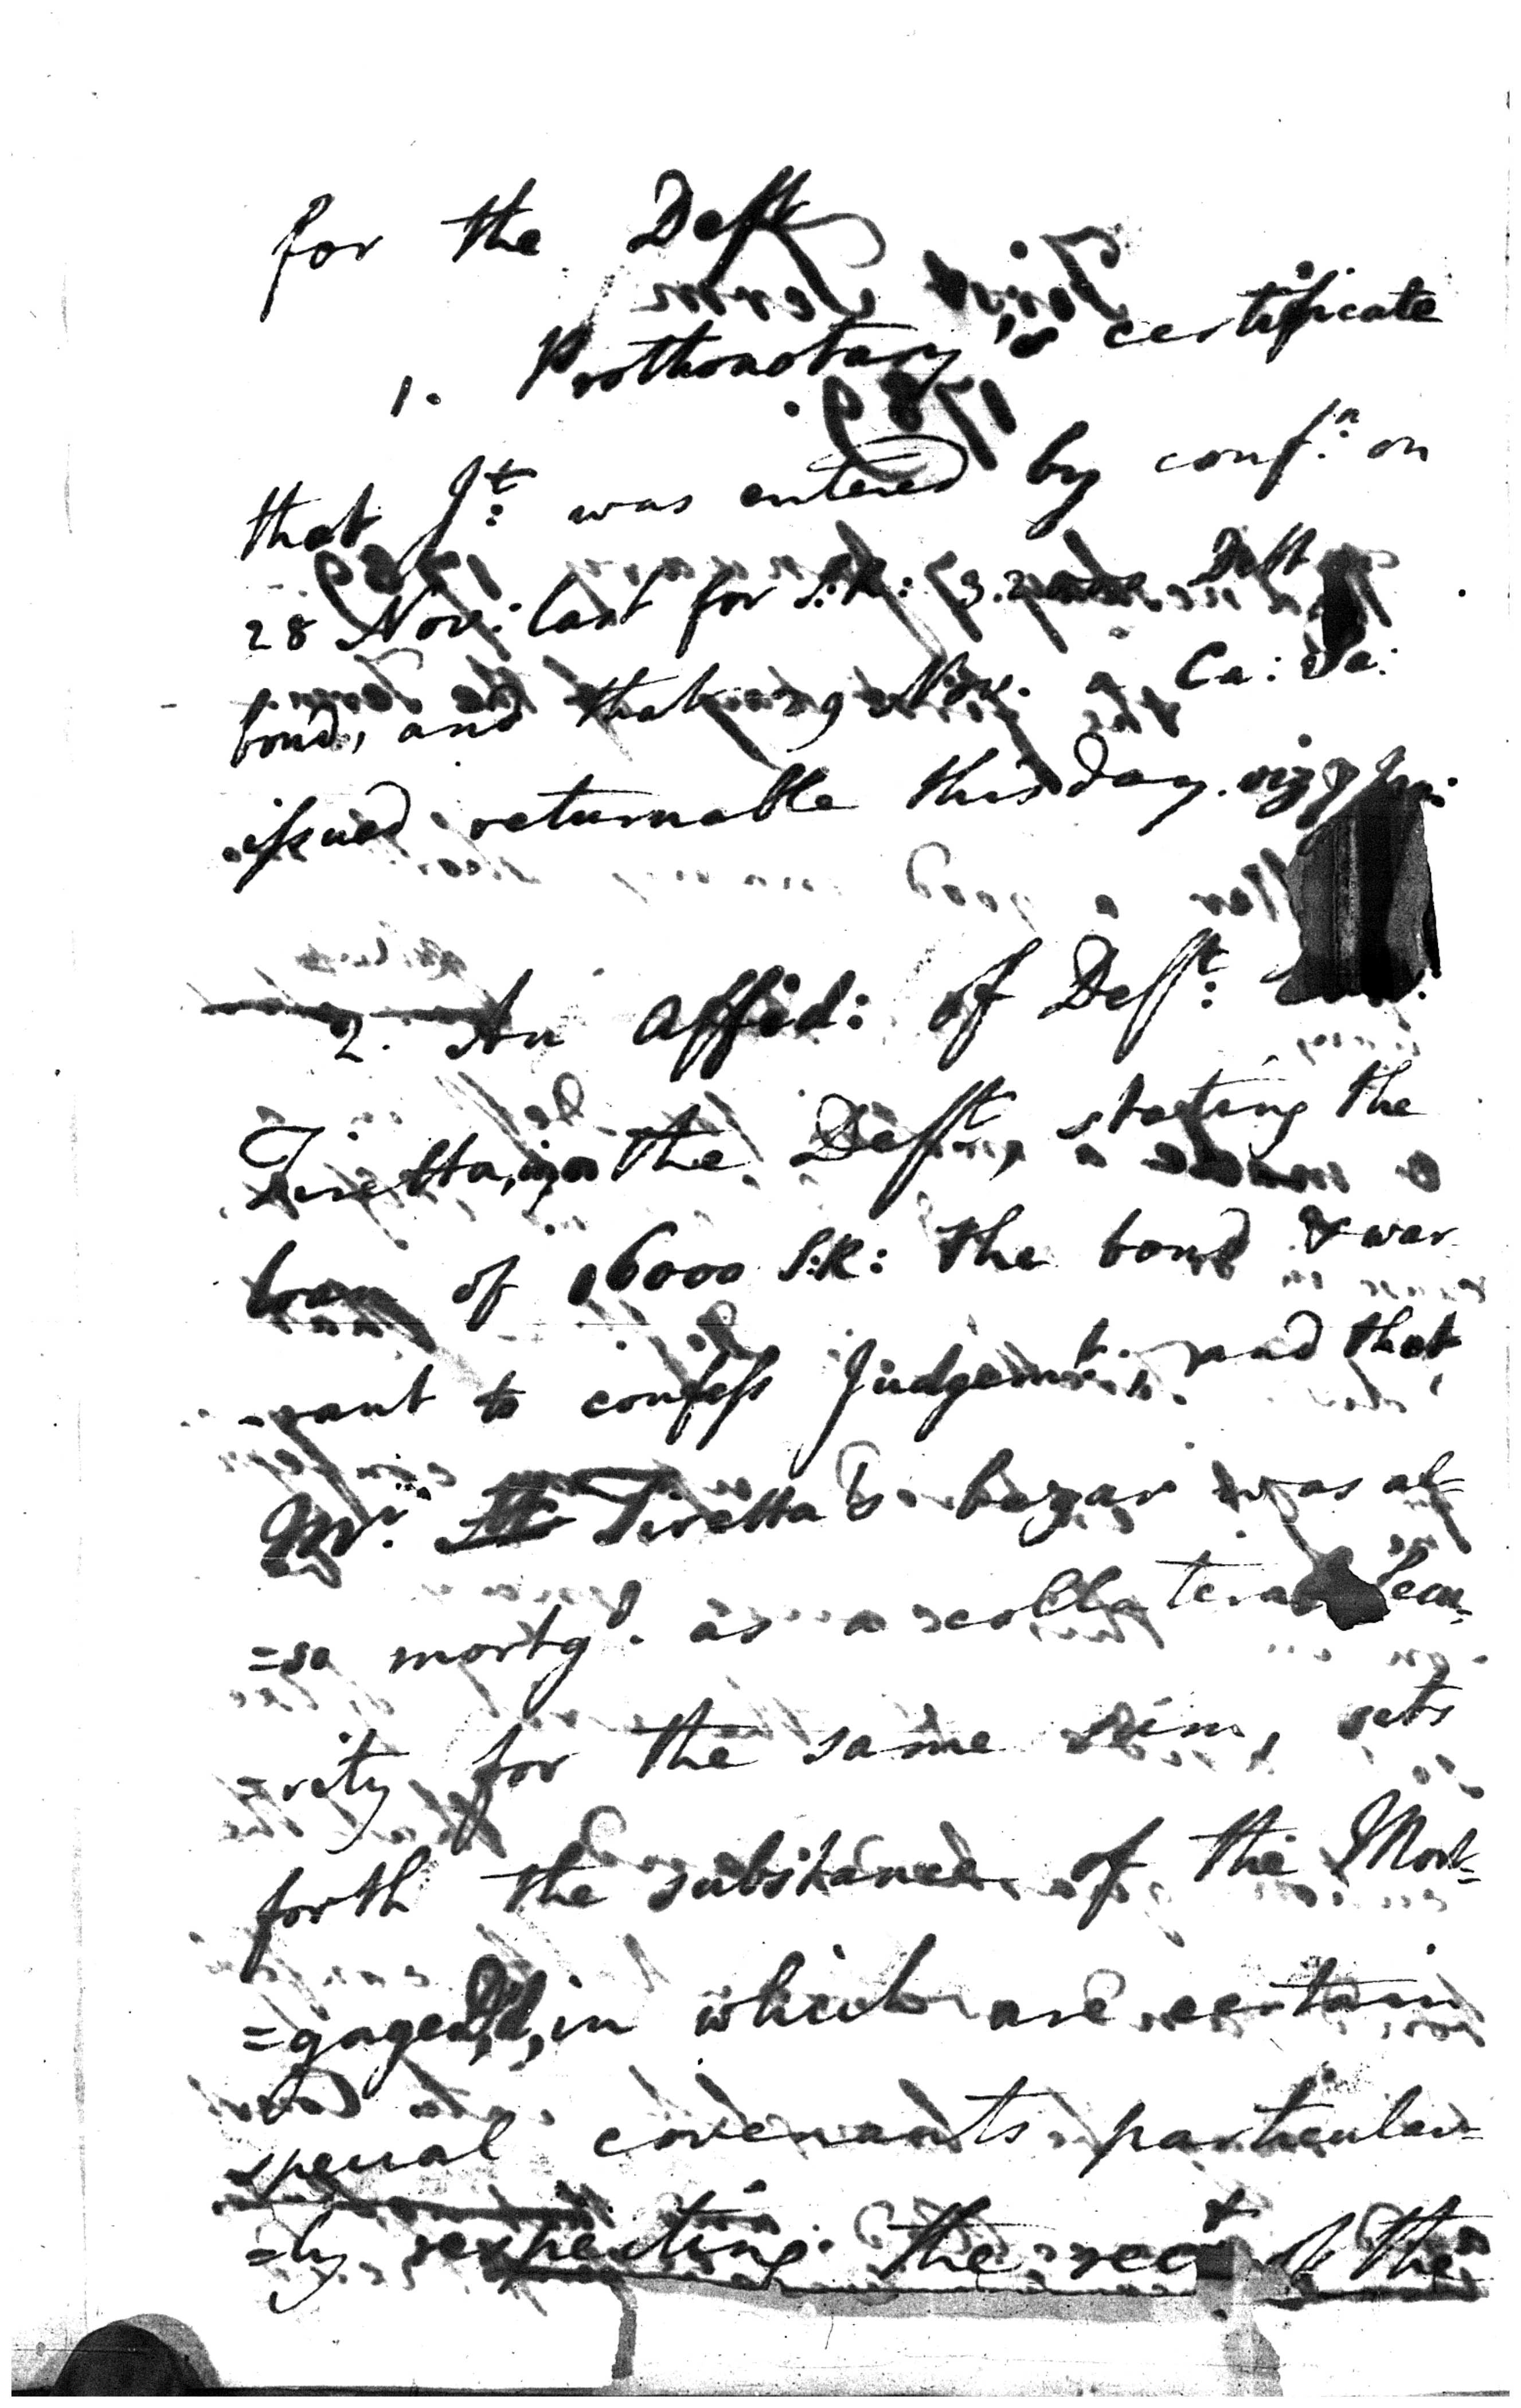 for the Deft
1. Prothonotary's certificate
that Jt: was entered by conf:n on
28 Nov: last for S:R: Deft
bond, and that Nov. a Ca: Sa:
issued returnable this day. viz
2. An affid: of Deft:
Tiretta, the Deft, stating the
loan of 16000 S:R: the bond & war
-rant to confess Judgemt., and that
Mr. Tiretta's bazar was al=
=so mortgd. as a collateral Secu=
=rity for the same sum, sets
forth the substance of the Mort=
=gage, in which are certain
special covenants particular=
=ly respecting the rect of the